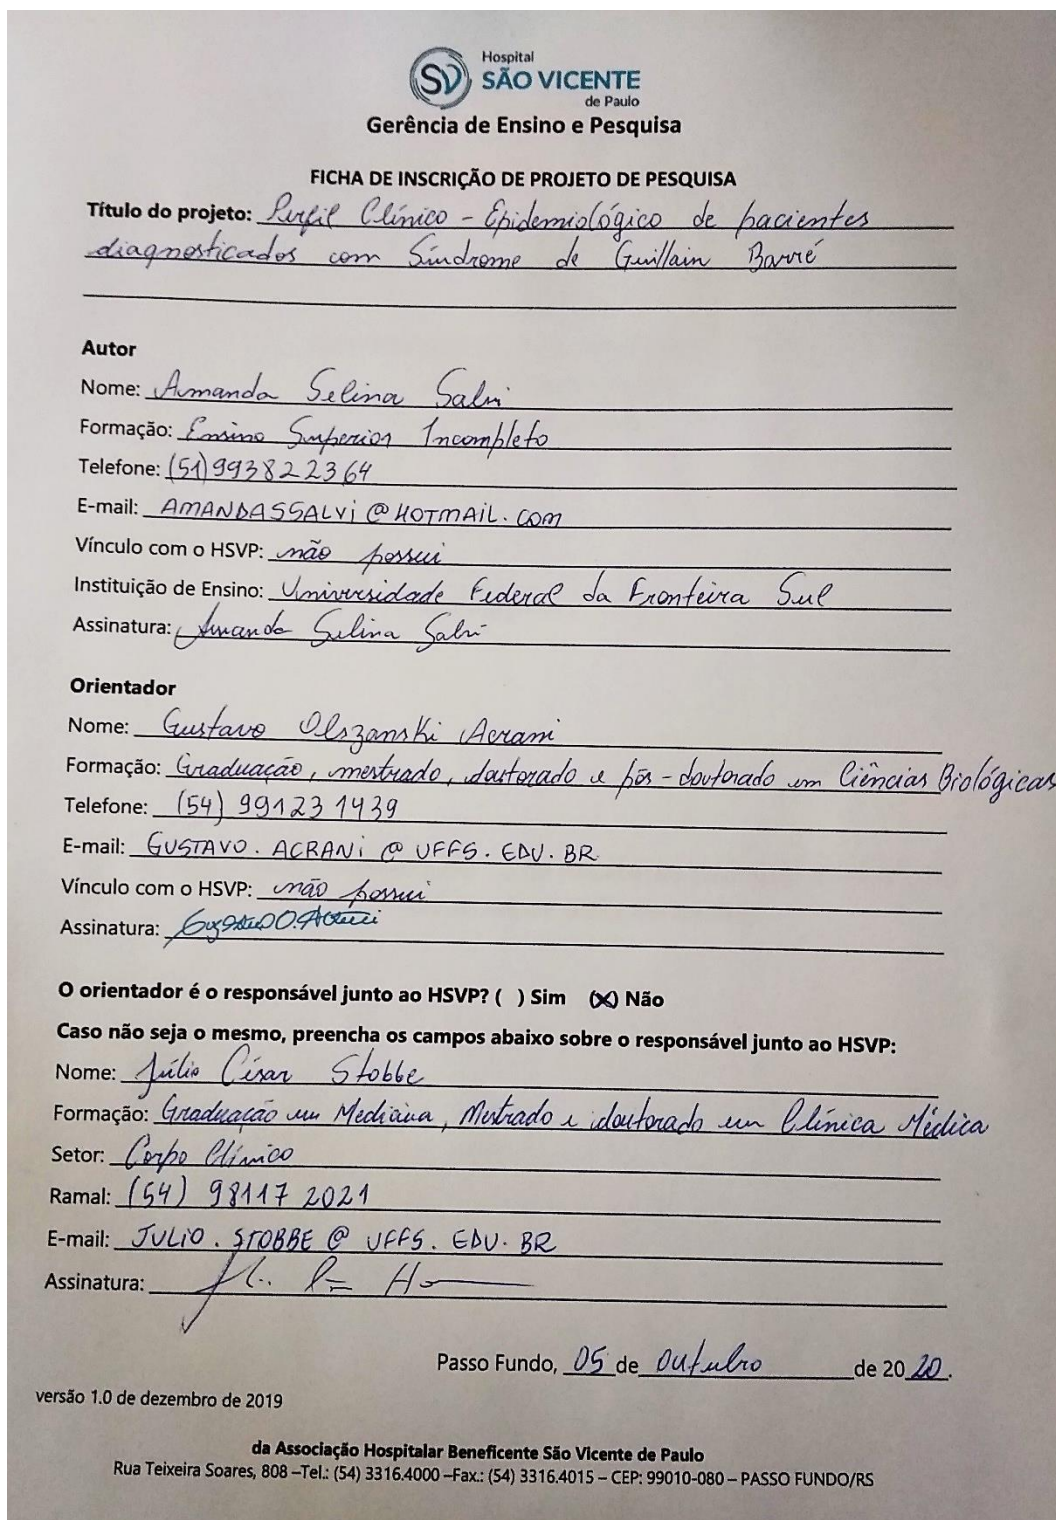 SV
Hospital
SÃO VICENTE
de Paulo
Gerência de Ensino e Pesquisa
FICHA DE INSCRIÇÃO DE PROJETO DE PESQUISA
Título do projeto: Perfil Clínico - Epidemiológico de pacientes
diagnosticados com Síndrome de Guillain Barré
Autor
Nome: Amanda Selina Salvi
Formação: Ensino Superior Incompleto
Telefone: (51) 993822364
E-mail: AMANDASSALVI@HOTMAIL.COM
Vínculo com o HSVP: não possui
Instituição de Ensino: Universidade Federal da Fronteira Sul
Assinatura: Amanda Selina Salvi
Orientador
Nome: Gustavo Olszanski Acrani
Formação: Graduação, mestrado, doutorado e pós-doutorado em Ciências Biológicas
Telefone: (54) 991231439
E-mail: GUSTAVO.ACRANI@UFFS.EDU.BR
Vínculo com o HSVP: não possui
Assinatura: Gustavo O. Acrani
O orientador é o responsável junto ao HSVP? ( ) Sim (X) Não
Caso não seja o mesmo, preencha os campos abaixo sobre o responsável junto ao HSVP:
Nome: Júlio César Stobbe
Formação: Graduação em Medicina, Mestrado e doutorado em Clínica Médica
Setor: Corpo Clínico
Ramal: (54) 98117 2021
E-mail: JULIO.STOBBE@UFFS.EDU.BR
Assinatura:
Passo Fundo, 05 de outubro de 2020.
versão 1.0 de dezembro de 2019
da Associação Hospitalar Beneficente São Vicente de Paulo
Rua Teixeira Soares, 808 –Tel.: (54) 3316.4000 –Fax.: (54) 3316.4015 – CEP: 99010-080 – PASSO FUNDO/RS